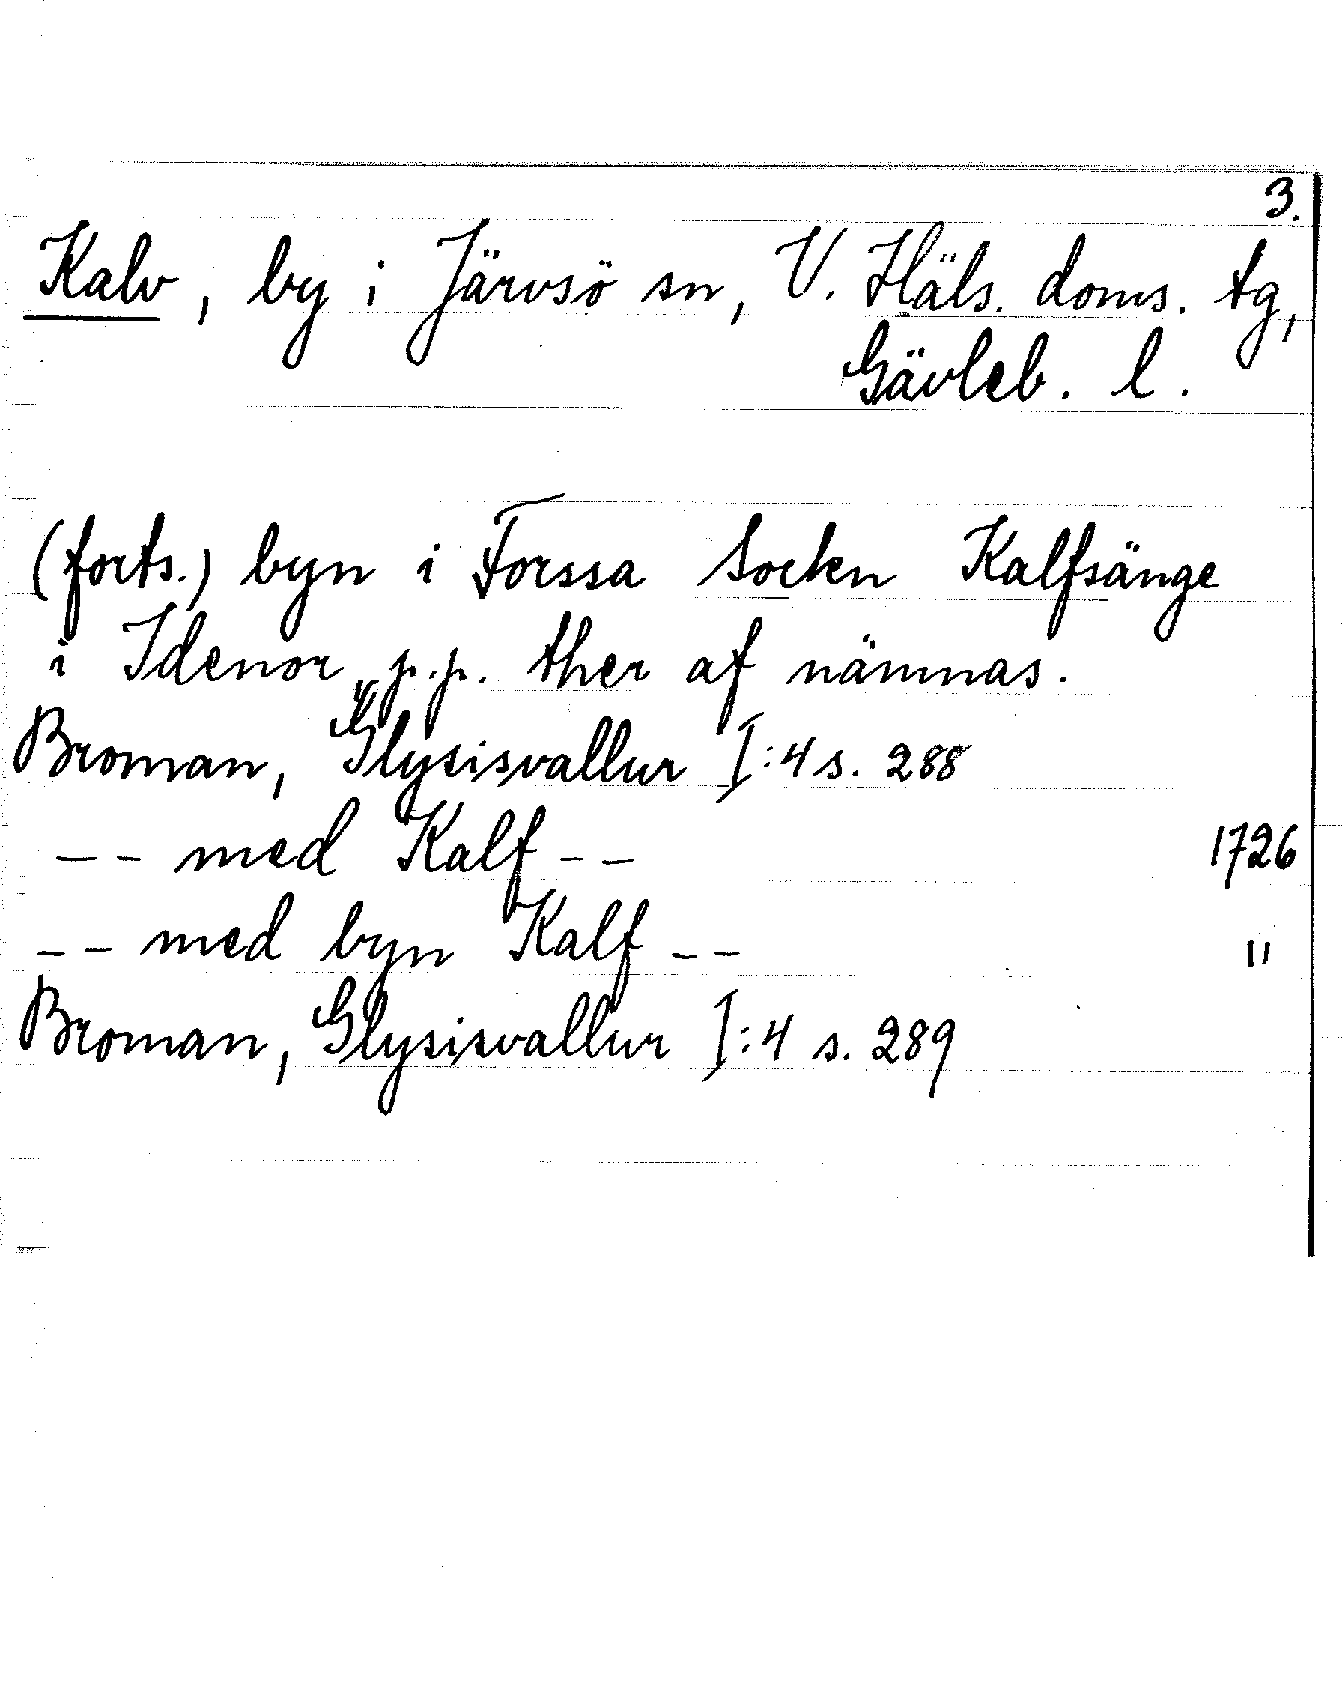 3.
Kalv, by i Järvsö sn, V. Häls. doms. tg,
Gävleb. l.
(forts.) byn i Forssa Socken Kalfsänge
i Idenor p.p. ther af nämnas.
Broman, Glysisvallur I:4 s. 288
-- med Kalf -- 1726
-- med byn Kalf -- "
Broman, Glysisvallur I:4 s. 289